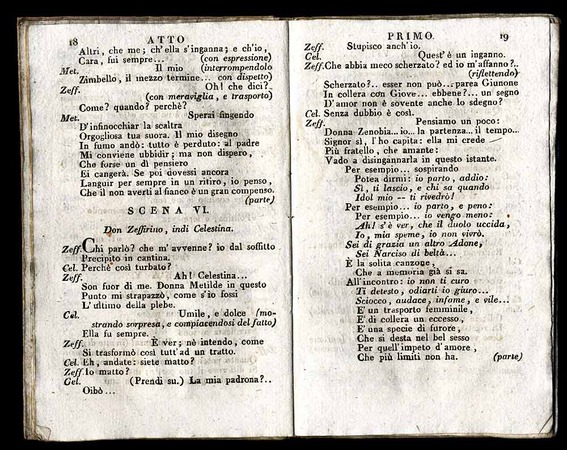 18 ATTO
Altri, che me; ch'ella s'inganna; e ch'io,
Cara, fui sempre... (con espressione)
Met. Il mio (interrompendolo
Zimbello, il mezzo termine... con dispetto)
Zeff. Oh! che dici?
(con meraviglia, e trasporto)
Come? quando? perchè?
Met. Sperai fingendo
D'infinocchiar la scaltra
Orgogliosa tua suora. Il mio disegno
In fumo andò: tutto è perduto: al padre
Mi conviene ubbidir; ma non dispero,
Che forse un dì pensiero
Ei cangerà. Se poi dovessi ancora
Languir per sempre in un ritiro, io penso,
Che il non averti al fianco è un gran compenso.
(parte)
SCENA VI.
Don Zeffirino, indi Celestina.
Zeff. Chi parlò? che m'avvenne? io dal soffitto
Precipito in cantina.
Cel. Perchè così turbato?
Zeff. Ah! Celestina...
Son fuor di me. Donna Metilde in questo
Punto mi strapazzò, come s'io fossi
L'ultimo della plebe.
Cel. Umile, e dolce (mo-
strando sorpresa, e compiacendosi del fatto)
Ella fu sempre.
Zeff. E ver; nè intendo, come
Si trasformò così tutt'ad un tratto.
Cel. Eh, andate: siete matto?
Zeff. Io matto?
Cel. (Prendi su.) La mia padrona?..
Oibò...
PRIMO. 19
Zeff. Stupisco anch'io.
Cel. Quest'è un inganno.
Zeff. Che abbia meco scherzato? ed io m'affanno?..
(riflettendo)
Scherzato?.. esser non può... parea Giunone
In collera con Giove... ebbene?... un segno
D'amor non è sovente anche lo sdegno?
Cel. Senza dubbio è così.
Zeff. Pensiamo un poco:
Donna Zenobia... io... la partenza... il tempo...
Signor sì, l'ho capita: ella mi crede
Più fratello, che amante:
Vado a disingannarla in questo istante.
Per esempio... sospirando
Potea dirmi: io parto, addio:
Sì, ti lascio, e chi sa quando
Idol mio -- ti rivedrò!
Per esempio... io parto, e peno:
Per esempio... io vengo meno:
Ah! s'è ver, che il duolo uccida,
Io, mia speme, io non vivrò.
Sei di grazia un altro Adone,
Sei Narciso di beltà...
È la solita canzone,
Che a memoria già si sa.
All'incontro: io non ti curo
Ti detesto, odiarti io giuro...
Sciocco, audace, infame, e vile...
E' un trasporto femminile,
E' di collera un eccesso,
E' una specie di furore,
Che si desta nel bel sesso
Per quell'impeto d'amore,
Che più limiti non ha. (parte)